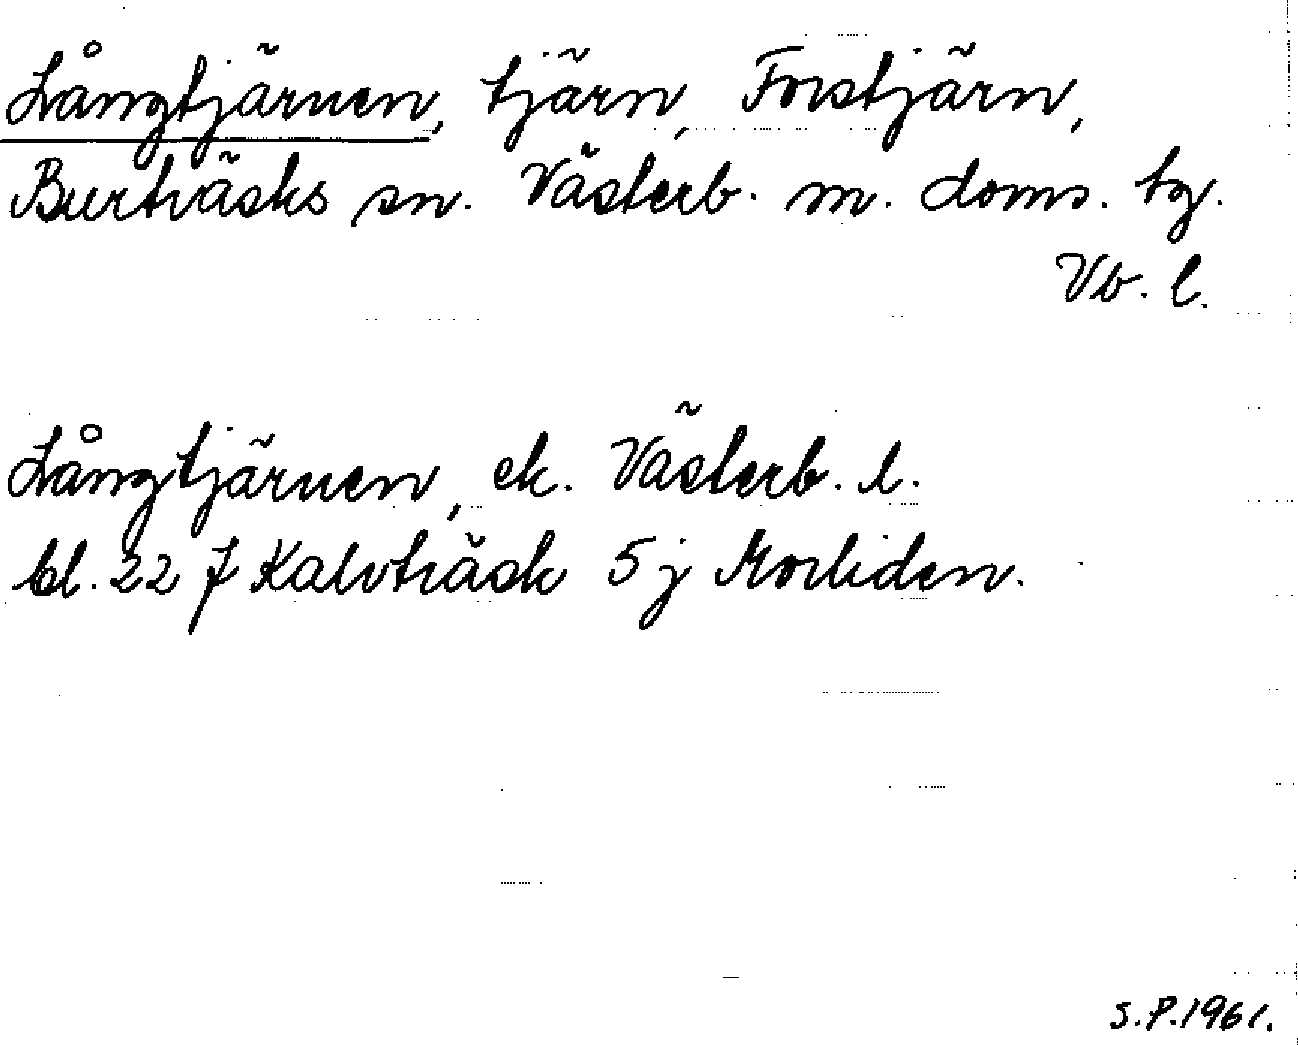 Långtjärnen, tjärn, Forstjärn,
Burträsks sn. Västerb. m. doms. tg.
Vb. l.
Långtjärnen, ek. Västerb. l.
bl. 22 J Kalvträsk 5 j Morliden.
S.P.1961.